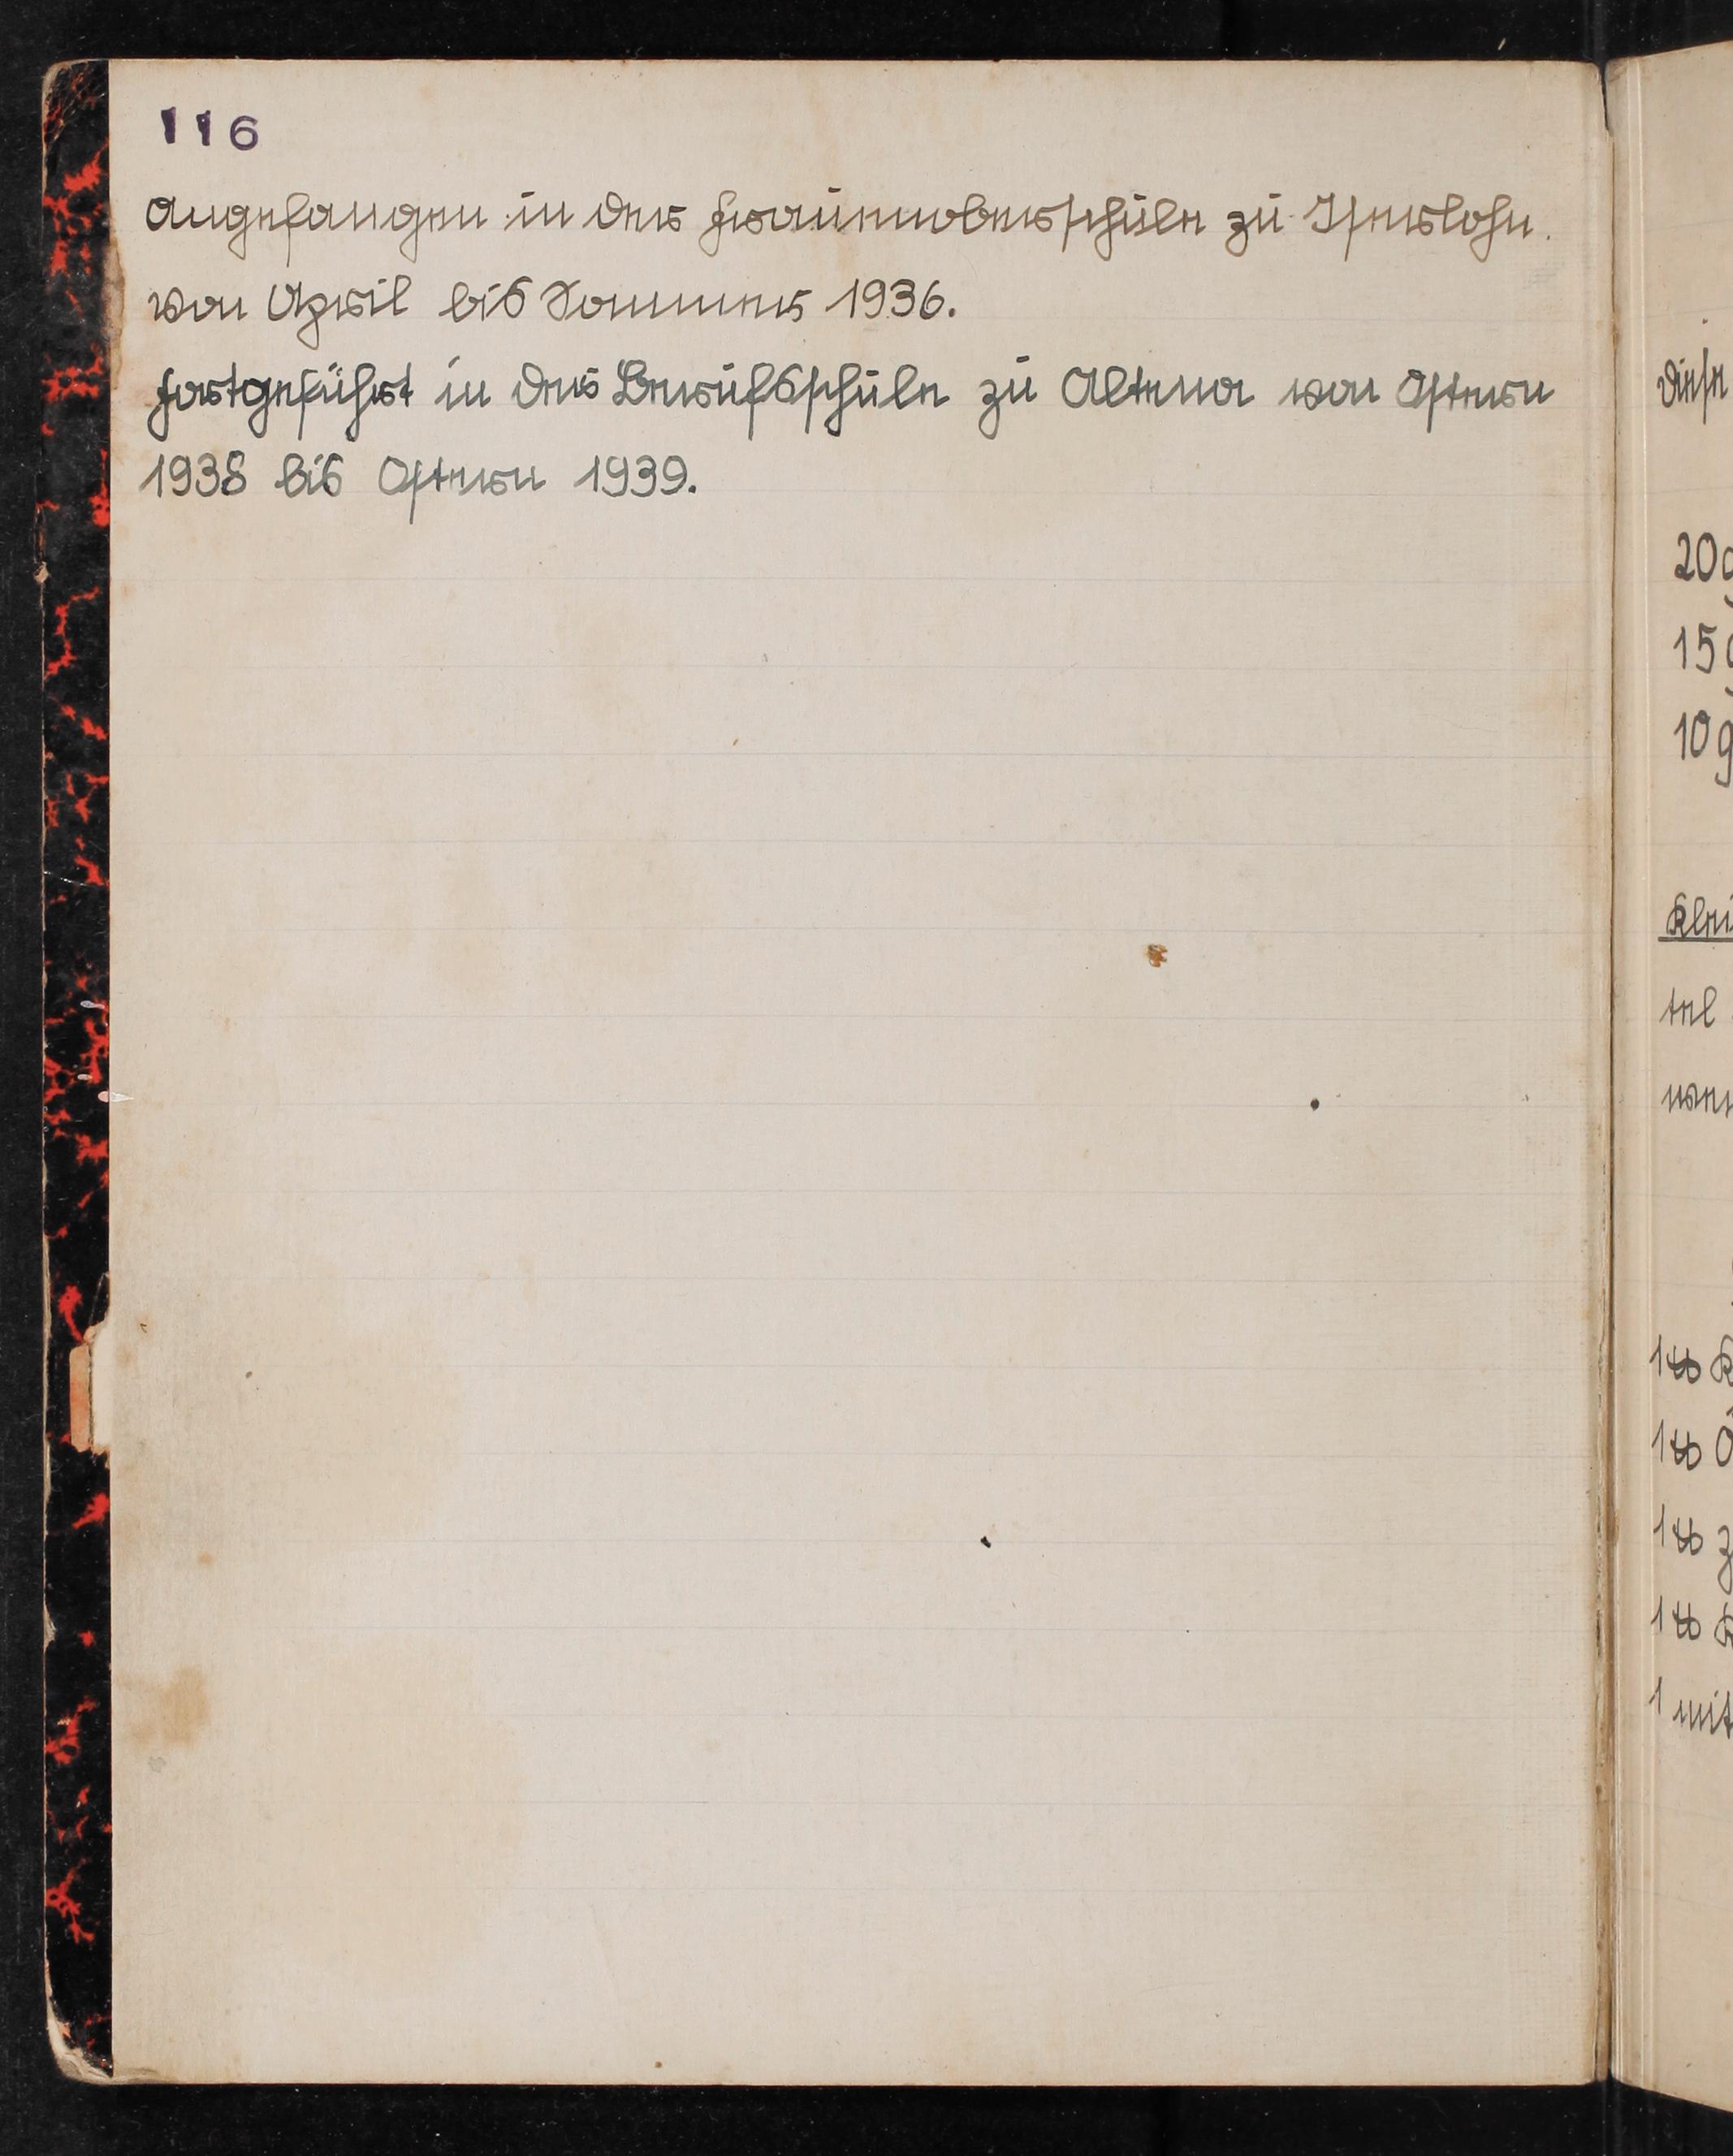 116
Angefangen in der Frauenoberschule zu Iserlohn.
von April bis Sommer 1936.
Fortgeführt in der Berufsschule zu Altena von Ostern
1938 bis Ostern 1939.
Diese
20g
15g
10g
Klei
tel
1 ℔ K
1 ℔
1 ℔ z
1 ℔ K
1 mit